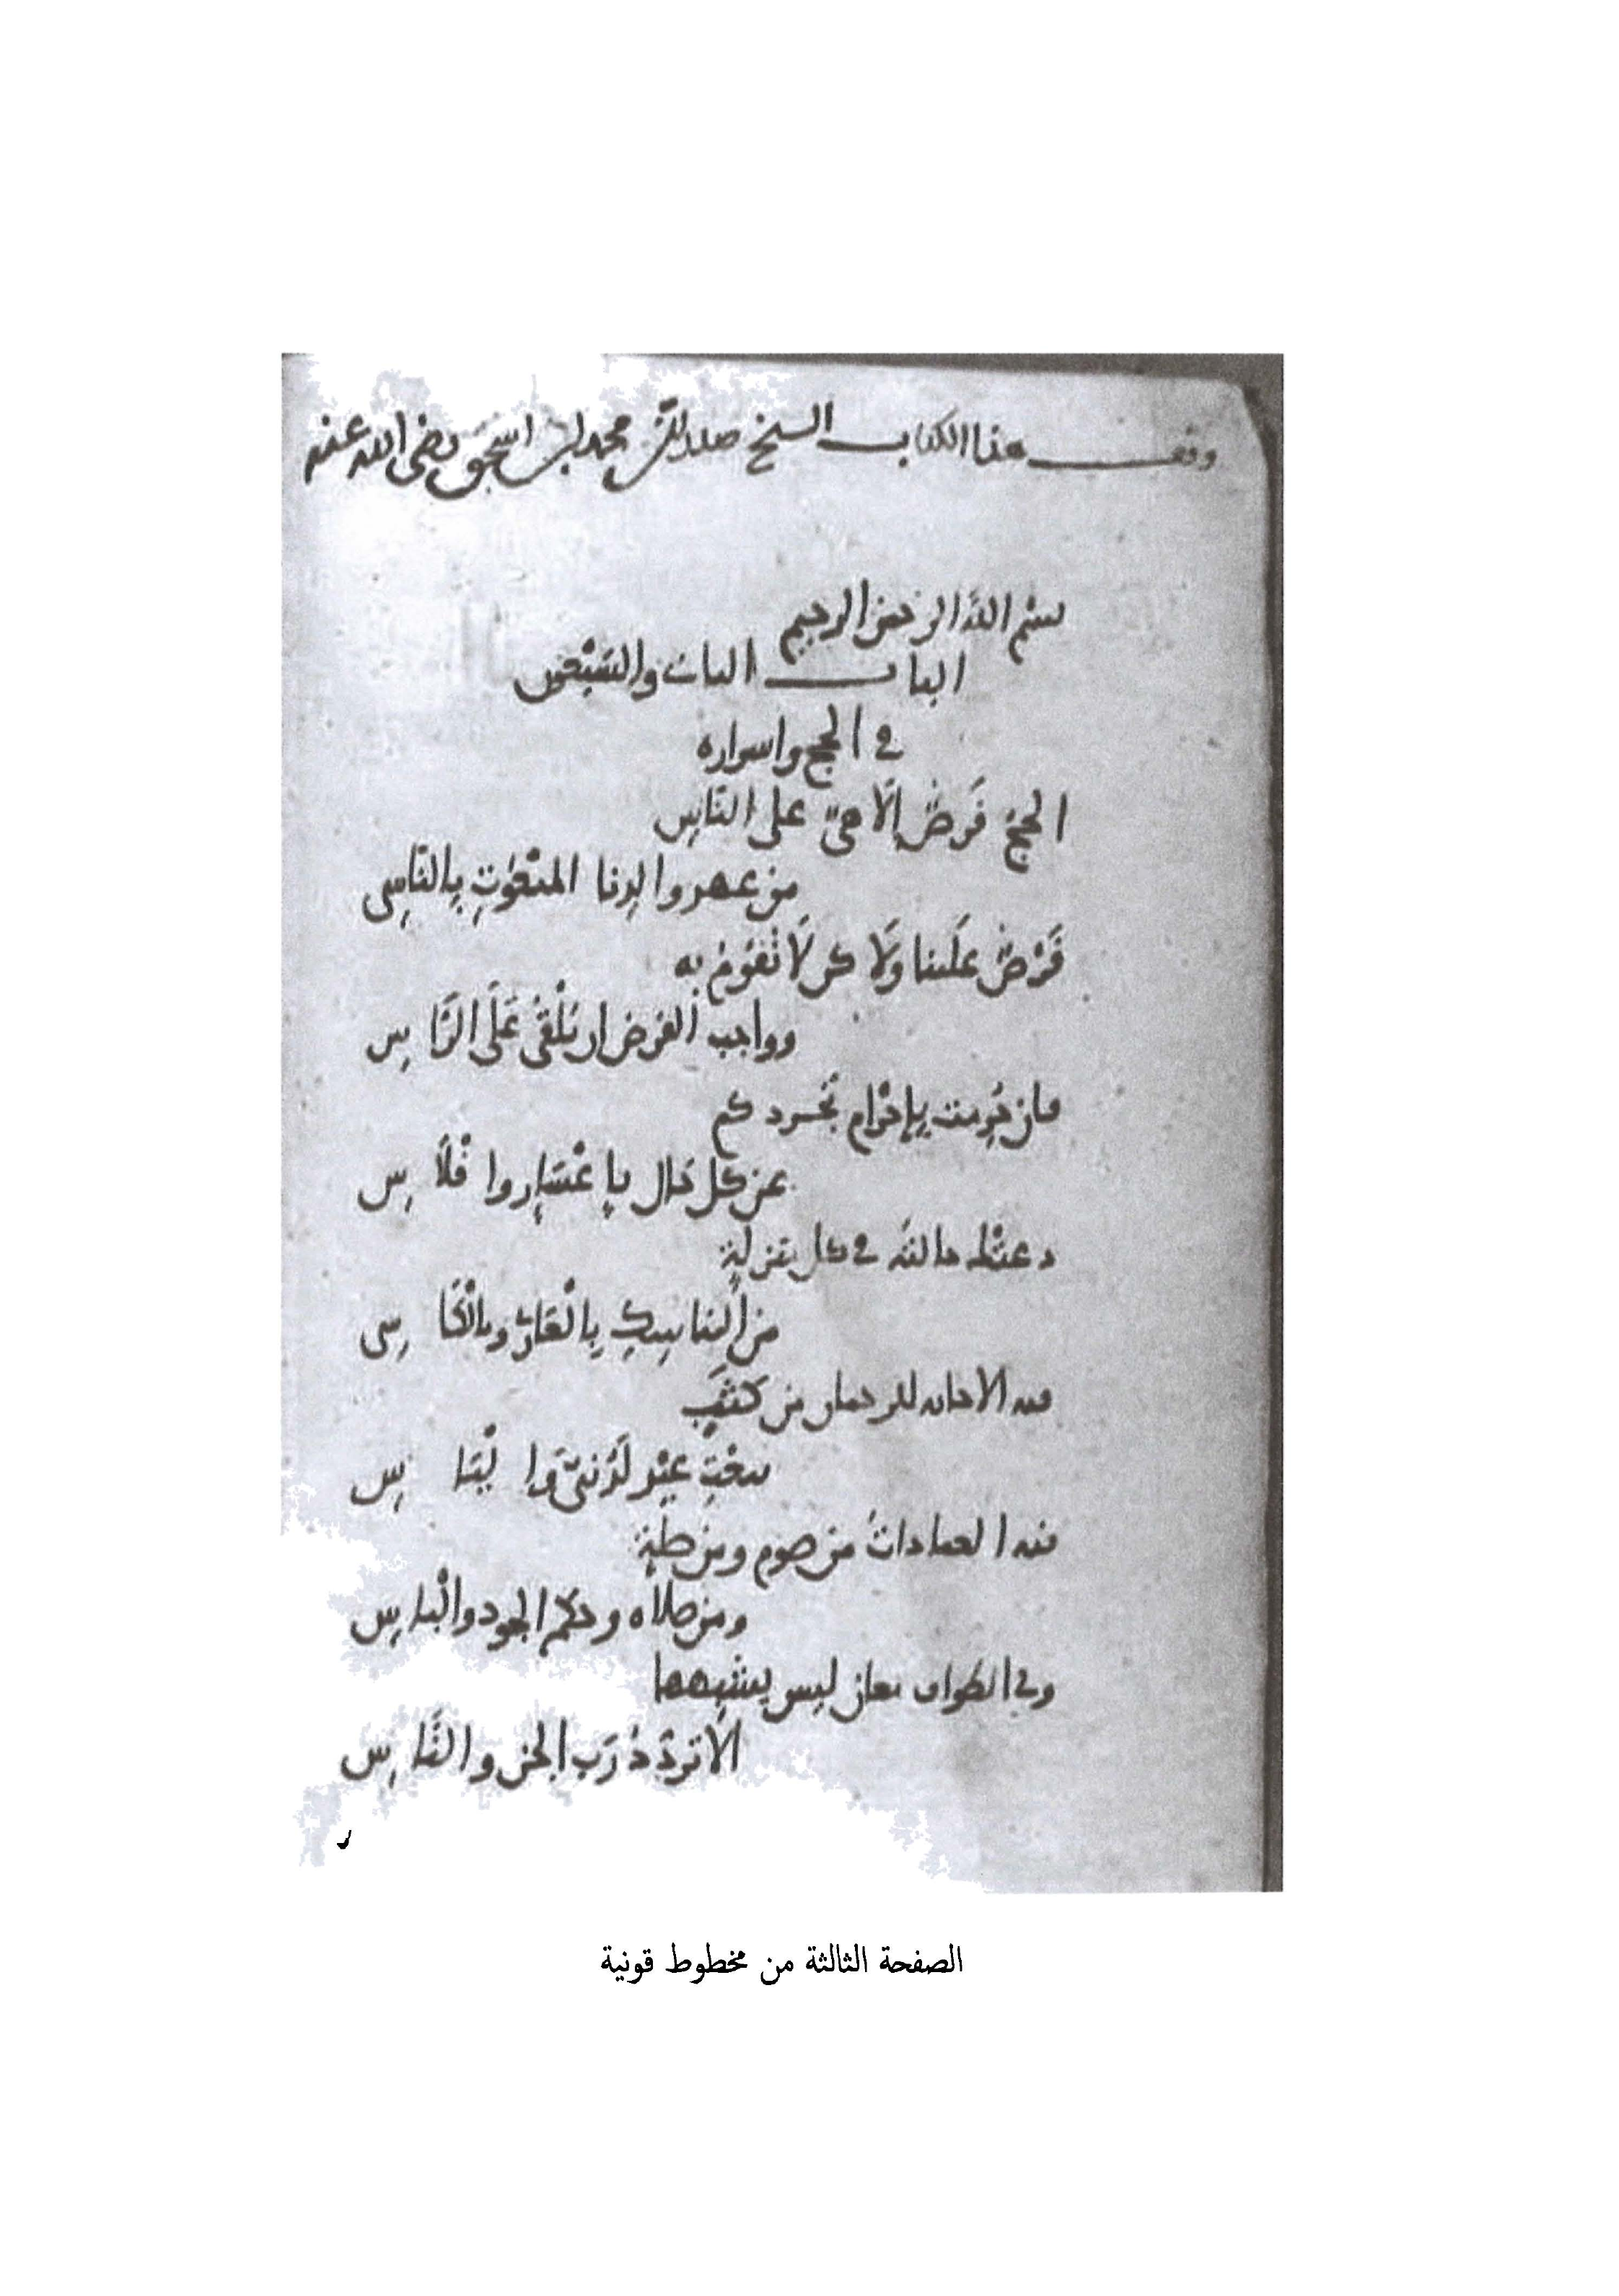 وقف هذا الكتاب الشيخ صدر الدين محمد بن اسحق رضي الله عنه
بسم الله الرحمن الرحيم
الباب الثاني والسبعون
في الحج واسراره
الحج فَرْضٌ إلَاهيّ على النّاسِ
من عهد والدنا المنعُوتِ بِالنّاسِى
فَرْضٌ علَينا وَلَاكن لَا نقُومُ به
وواجب الفرض ان نُلْقى عَلَى الرّاسِ
فان حُرِمت بِإحْرَام تجَردكم
عن كل حَال بإعْسَارٍ وافْلَاسِ
دعتْك حالته في كل منزلةٍ
من المناسِكِ بِالْعَارِى وبالْكَاسِى
فيه الاجابه للرحمان من كَثَبٍ
بنَعْتِ عبْدٍ لَدُنىّ وَالْبَاسِ
فيه العباداتُ من صوم ومن صلةٍ
ومن صلاه وحكم الجود والْباسِ
وفي الطواف معان ليس يشبِهها
الا تردّدُ رَب الجن والنَّاسِ
الصفحة الثالثة من مخطوط قونية